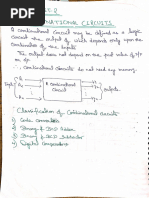 COMBINATIONAL CIRCUITS
A combinational circuit may be defined as a logic
circuit the output of which depends only upon the
combination of the inputs.
The output does not depend on the past value of i/p
or o/p.
. Combinational circuits do not need any memory.
Inputs
A combinational
circuit
Classification of Combinational Circuits:
1) Code converters
2) Binary & BCD Adder
3) & BCD Subtractor
4) Digital Comparators